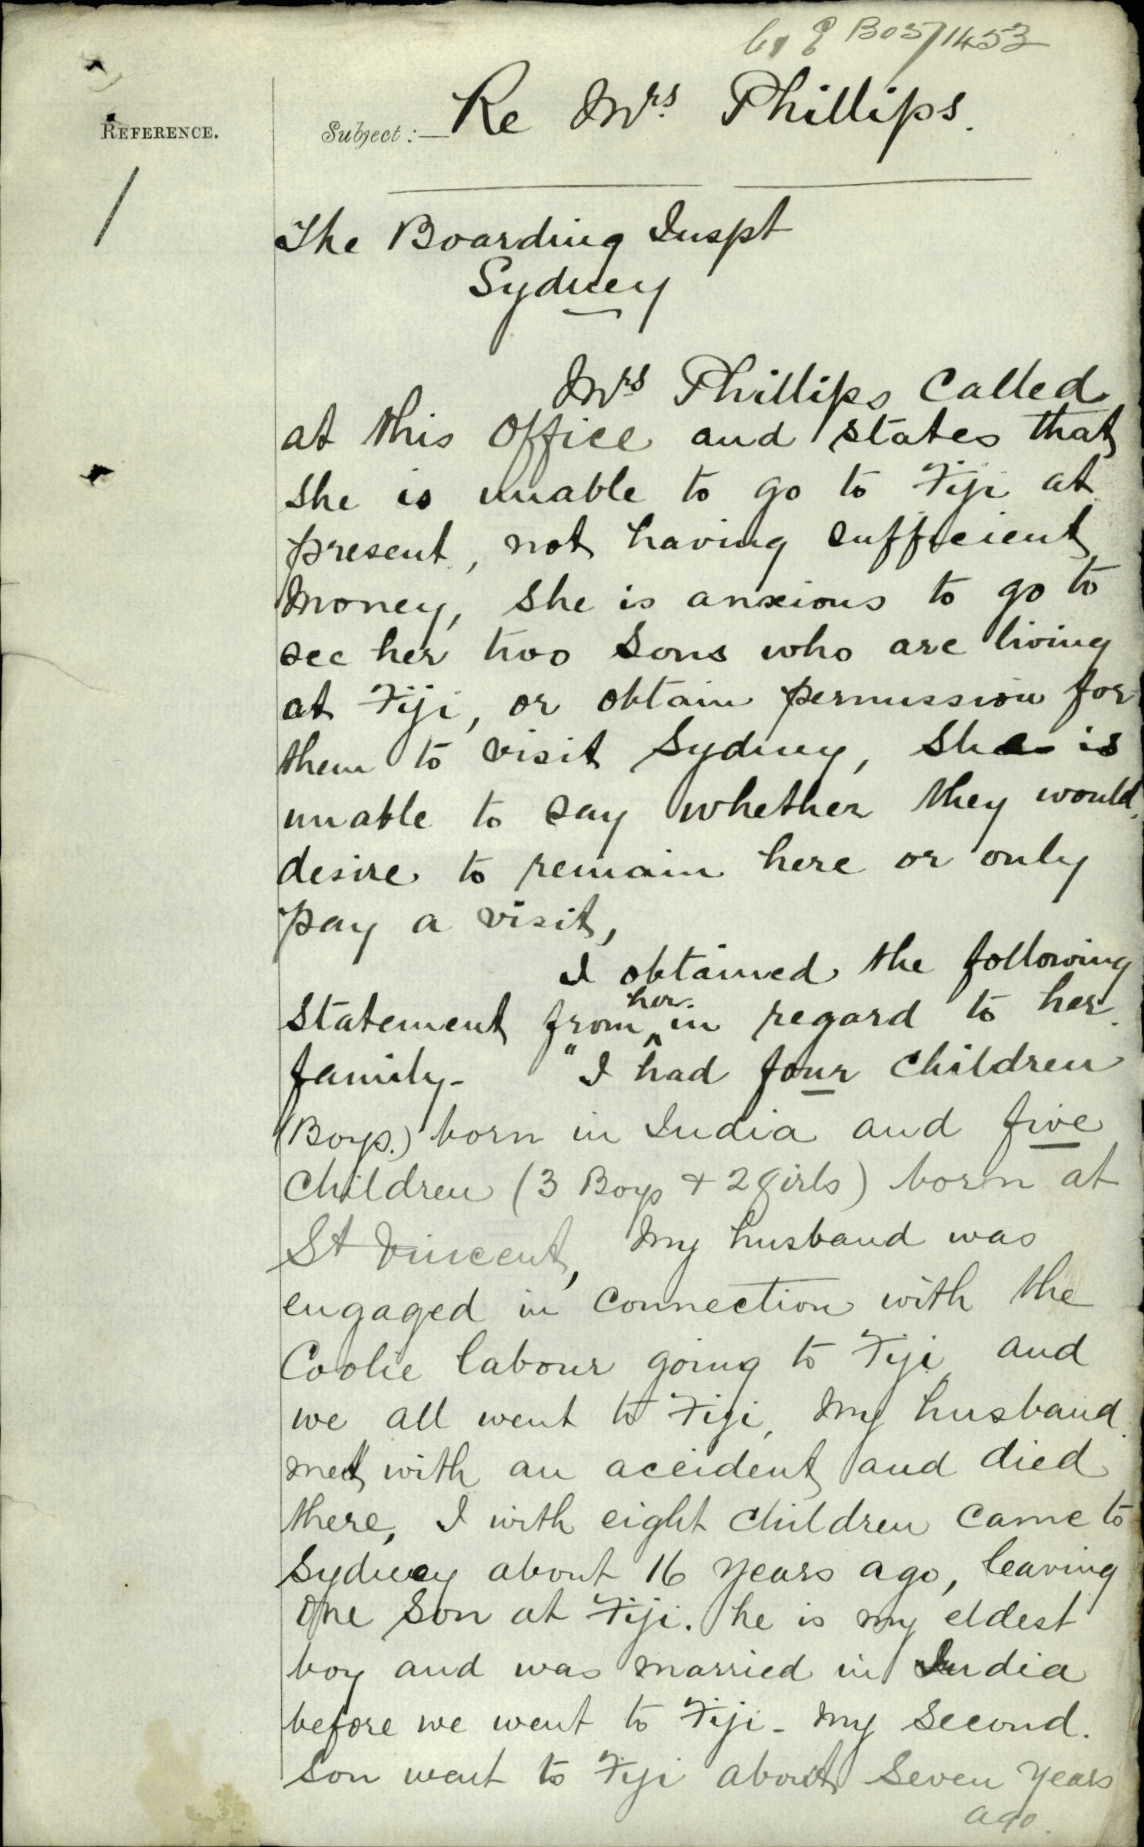 B05/1453
REFERENCE.
Subject:— Re Mrs. Phillips.
1
The Boarding Inspt
Sydney
Mrs Phillips Called
at this Office and states that
she is unable to go to Fiji at
present, not having sufficient
money, she is anxious to go to
see her two Sons who are living
at Fiji, or obtain permission for
them to visit Sydney, she is
unable to say whether they would
desire to remain here or only
pay a visit,
I obtained the following
statement from her in regard to her
family- "I had four Children
(Boys.) born in India and five
Children (3 Boys + 2 girls) born at
St Vincent, My husband was
engaged in connection with the
Coolie labour going to Fiji and
we all went to Fiji, My husband
met with an accident and died
there, I with eight children came to
Sydney about 16 years ago, leaving
One Son at Fiji. he is my eldest
boy and was married in India
before we went to Fiji - My Second.
Son went to Fiji about Seven years
ago.